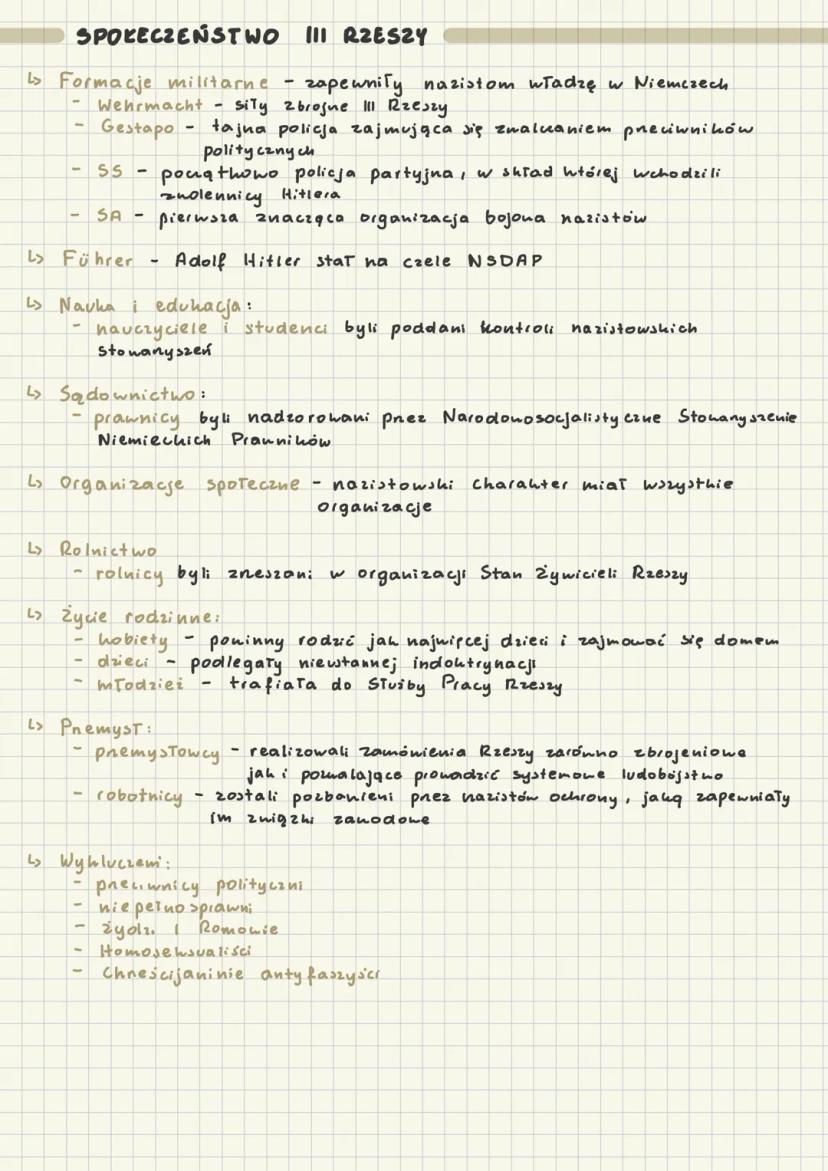 SPOŁECZEŃSTWO III RZESZY
↳ Formacje militarne - zapewniły nazistom władzę w Niemczech
- Wehrmacht - siły zbrojne III Rzeszy
- Gestapo - tajna policja zajmująca się zwalczaniem przeciwników
politycznych
- SS - początkowo policja partyjna, w skład której wchodzili
zwolennicy Hitlera
- SA - pierwsza znacząca organizacja bojowa nazistów
↳ Führer - Adolf Hitler stał na czele NSDAP
↳ Nauka i edukacja:
- nauczyciele i studenci byli poddani kontroli nazistowskich
stowarzyszeń
↳ Sądownictwo:
- prawnicy byli nadzorowani przez Narodowosocjalistyczne Stowarzyszenie
Niemieckich Prawników
↳ Organizacje społeczne - nazistowski charakter miał wszystkie
organizacje
↳ Rolnictwo
- rolnicy byli zrzeszani w organizacji Stan Żywicieli Rzeszy
↳ Życie rodzinne:
- kobiety - powinny rodzić jak najwięcej dzieci i zajmować się domem
- dzieci - podlegały nieustannej indoktrynacji
- młodzież - trafiała do Służby Pracy Rzeszy
↳ Przemysł:
- przemysłowcy - realizowali zamówienia Rzeszy zarówno zbrojeniowe
jak i pozwalające prowadzić systemowe ludobójstwo
- robotnicy - zostali pozbawieni przez nazistów ochrony, jaką zapewniały
im związki zawodowe
↳ Wykluczeni:
- przeciwnicy polityczni
- niepełnosprawni
- żydzi i Romowie
- Homoseksualiści
- Chrześcijaninie antyfaszyści